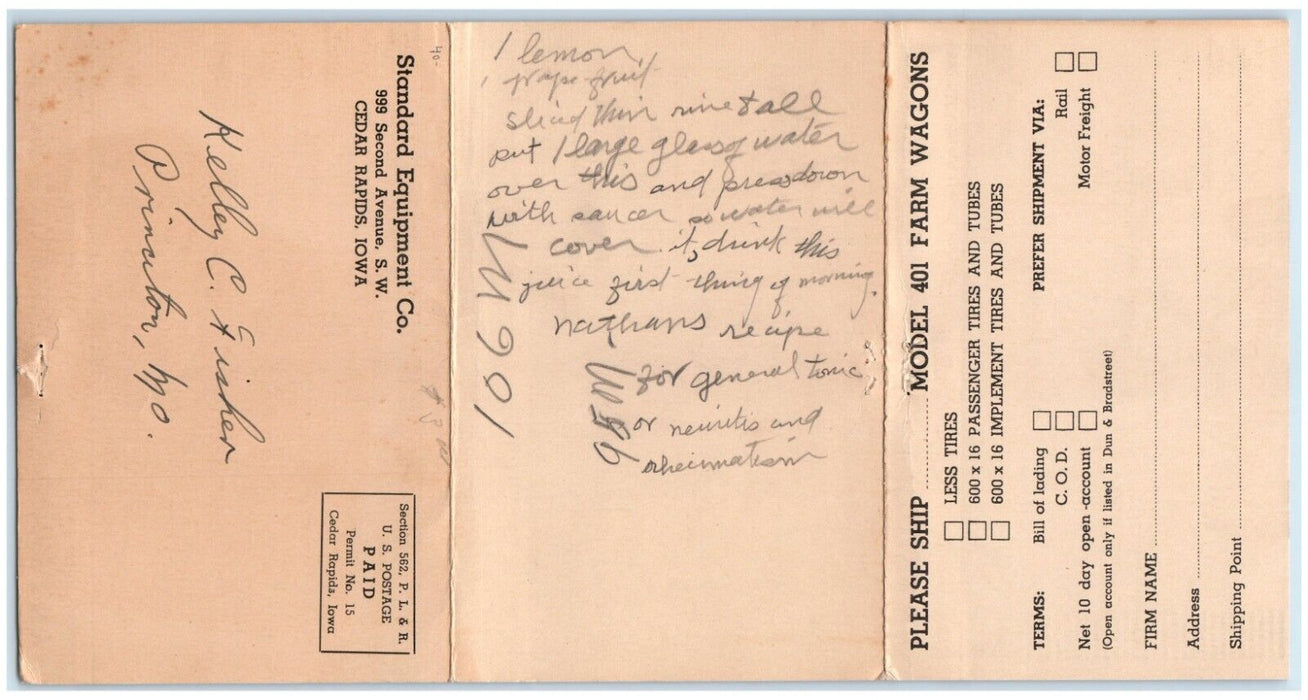 Standard Equipment Co.
999 Second Avenue, S. W.
CEDAR RAPIDS, IOWA
40-
Kelley C. Fisher
Princeton, Mo.
Section 562, P. L. & R.
U. S. POSTAGE
PAID
Permit No. 15
Cedar Rapids, Iowa
1 lemon
1 grape fruit
sliced thin rine & all
put 1 large glass of water
over this and press down
with saucer so water will
cover it, drink this
juice first thing of morning.
Nathans recipe
for general tonic
or neuritis and
rheumatism
PLEASE SHIP ........ MODEL 401 FARM WAGONS
LESS TIRES
600 x 16 PASSENGER TIRES AND TUBES
600 x 16 IMPLEMENT TIRES AND TUBES
TERMS: Bill of lading PREFER SHIPMENT VIA:
C. O. D. Rail
Net 10 day open account Motor Freight
(Open account only if listed in Dun & Bradstreet)
FIRM NAME
Address
Shipping Point